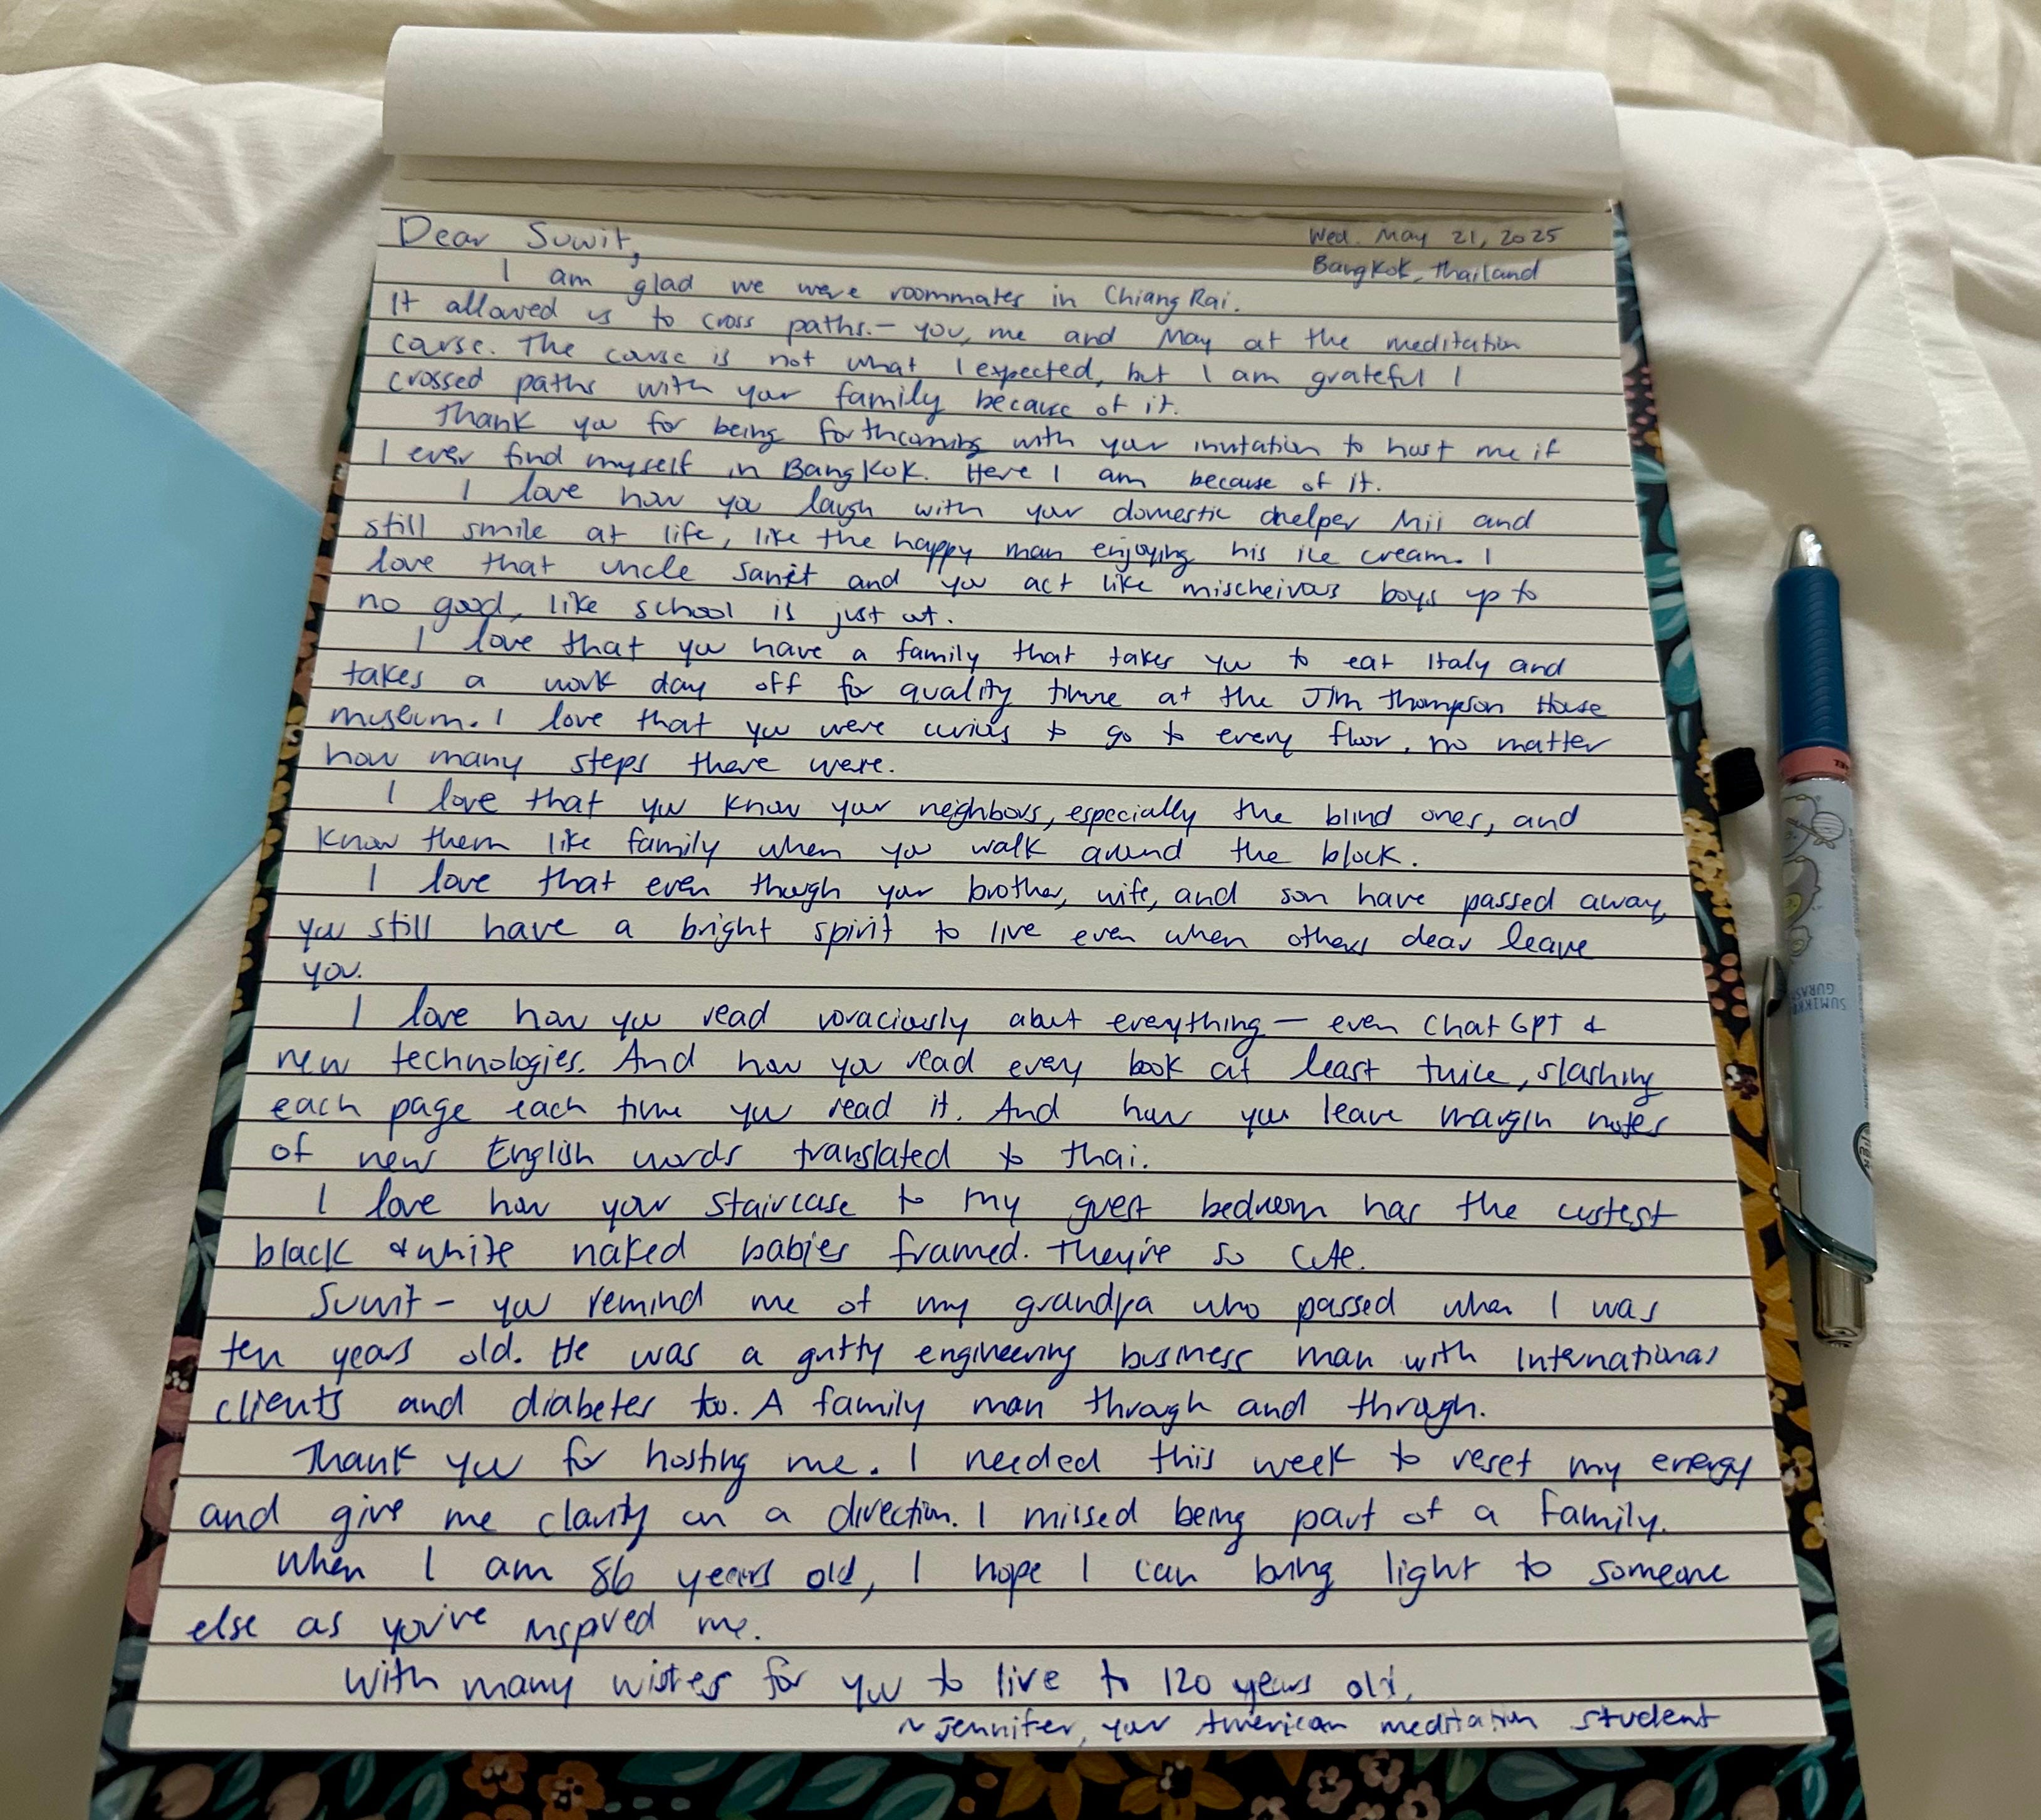 Dear Suwit,
Wed. May 21, 2025
Bangkok, Thailand
I am glad we were roommates in Chiang Rai.
It allowed us to cross paths. — you, me and May at the meditation
course. The course is not what I expected, but I am grateful I
crossed paths with your family because of it.
Thank you for being forthcoming with your invitation to host me if
I ever find myself in Bangkok. Here I am because of it.
I love how you laugh with your domestic helper Mii and
still smile at life, like the happy man enjoying his ice cream. I
love that uncle Sanit and you act like mischeivous boys up to
no good, like school is just out.
I love that you have a family that takes you to eat Italy and
takes a work day off for quality time at the Jim Thompson House
museum. I love that you were curious to go to every floor, no matter
how many steps there were.
I love that you know your neighbors, especially the blind ones, and
know them like family when you walk around the block.
I love that even though your brother, wife, and son have passed away,
you still have a bright spirit to live even when others dear leave
you.
I love how you read voraciously about everything — even ChatGPT &
new technologies. And how you read every book at least twice, slashing
each page each time you read it. And how you leave margin notes
of new English words translated to Thai.
I love how your staircase to my guest bedroom has the cutest
black & white naked babies framed. They're so cute.
Suwit — you remind me of my grandpa who passed when I was
ten years old. He was a gritty engineering business man with international
clients and diabetes too. A family man through and through.
Thank you for hosting me. I needed this week to reset my energy
and give me clarity on a direction. I missed being part of a family.
When I am 86 years old, I hope I can bring light to someone
else as you've inspired me.
With many wishes for you to live to 120 years old,
~ Jennifer, your American meditation student
SUMIKKO
GURASHI